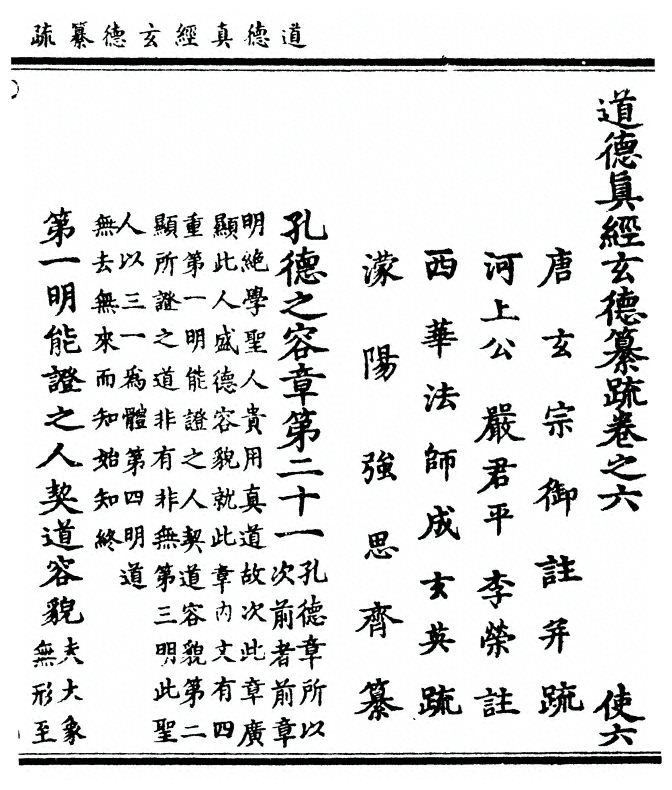 道德真經玄德纂疏
道德眞經玄德纂疏卷之六 使六
唐玄宗御註幷疏
河上公 嚴君平 李榮註
西華法師成玄英疏
濛陽強思齊纂
孔德之容章第二十一 孔德章所以
次前者前章
明絕學聖人貴用真道故次此章廣
顯此人盛德容貌就此章內文有四
重第一明能證之人契道容貌第二
顯所證之道非有非無第三明此聖
人以三一爲體第四明道
無去無來而知始知終
第一明能證之人契道容貌 夫大象
無形至